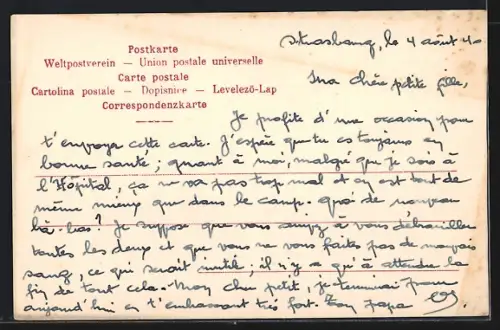 Postkarte
Weltpostverein — Union postale universelle
Carte postale
Cartolina postale — Dopisnice — Levelező-Lap
Correspondenzkarte
Strasbourg, le 4 août 40
Ma chère petite fille,
Je profite d'une occasion pour
t'envoyer cette carte. J'espère que tu es toujours en
bonne santé; quant à moi, malgré que je sois à
l'Hôpital, ça ne va pas trop mal et on est tout de
même mieux que dans le camp. Quoi de nouveau
là-bas? Je suppose que vous arrivez à vous débarrasser
toutes les deux et que vous ne vous faites pas de mauvais
sang, ce qui serait inutile; il n'y a qu'à attendre la
fin de tout cela. Mon cher petit, je termine pour
aujourd'hui en t'embrassant très fort. Ton papa